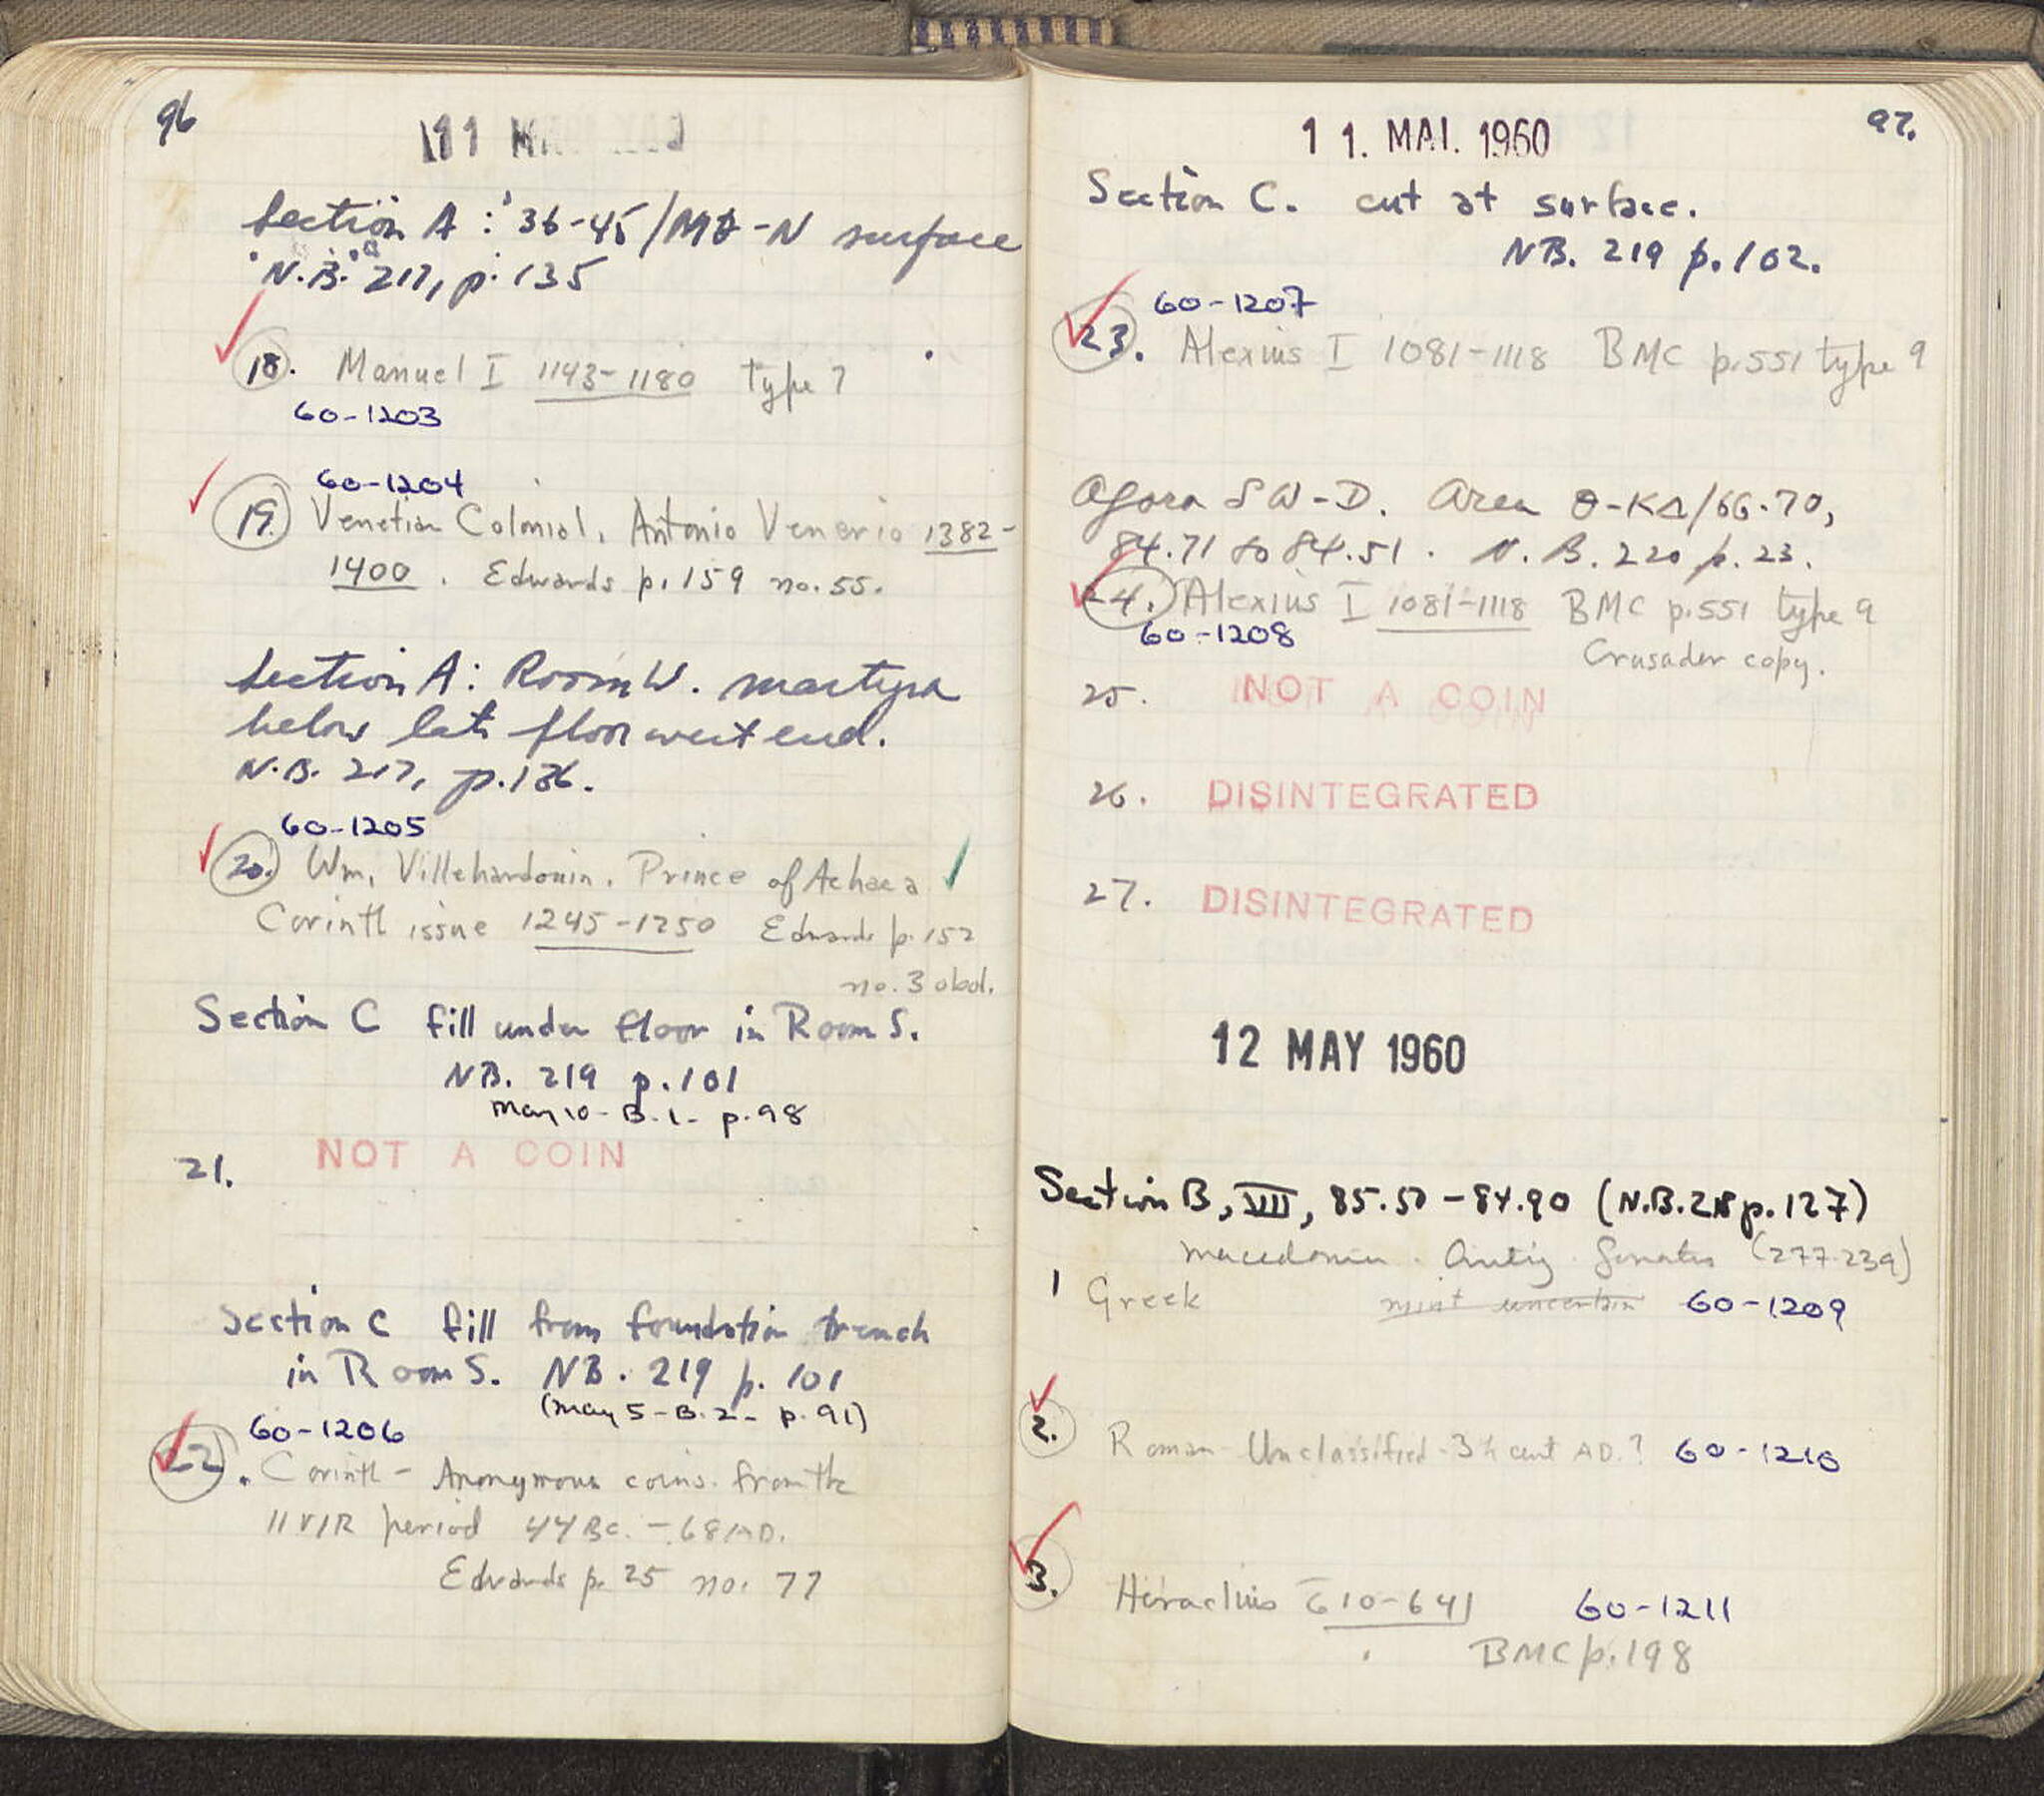 96
11
Section A : 36-45/MZ-N surface
N.B. 217, p. 135
18. Manuel I 1143-1180 type 7
60-1203
60-1204
19. Venetian Colonial, Antonio Venerio 1382-
1400. Edwards p. 159 no. 55.
Section A: Room W. martyra
below late floor west end.
N.B. 217, p. 136.
60-1205
20. Wm. Villehardouin. Prince of Achaea
Corinth issue 1245-1250 Edwards p. 152
no. 3 obol.
Section C fill under floor in Room S.
NB. 219 p. 101
May 10 - B. 1 - p. 98
21. NOT A COIN
Section C fill from foundation trench
in Room S. NB. 219 p. 101
(May 5 - B. 2 - p. 91)
60-1206
22. Corinth - Anonymous coins from the
IIVIR period 44 BC. - 68 AD.
Edwards p. 25 no. 77
97.
11. MAI. 1960
Section C. cut at surface.
NB. 219 p. 102.
60-1207
23. Alexius I 1081-1118 BMC p. 551 type 9
Agora SW-D. Area Θ-ΚΔ/66-70,
84.71 to 84.51. N.B. 220 p. 23.
24. Alexius I 1081-1118 BMC p. 551 type 9
60-1208
Crusader copy.
25. NOT A COIN
26. DISINTEGRATED
27. DISINTEGRATED
12 MAY 1960
Section B, VII, 85.50 - 84.90 (N.B. 218 p. 127)
Macedonia. Antig. Gonatas (277-239)
1 Greek mint uncertain 60-1209
2. Roman Unclassified - 3rd cent AD.? 60-1210
3. Heraclius 610-641 60-1211
BMC p. 198